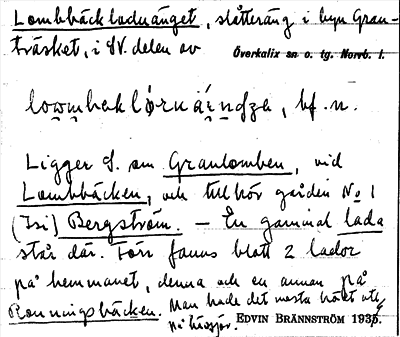 Lombbäckladuänget, slåtteräng i byn Gran-
träsket, i SV. delen av Överkalix sn o. tg. Norrb. l.
bf. n.
Ligger S. om Granlomben, vid
Lombbäcken, och tillhör gården No 1
(Isi) Bergström. — En gammal lada
står där. Förr fanns blott 2 lador
på hemmanet, denna och en annan på
Rönningsbäcken. Man hade det mesta höet ute
på hässjor. EDVIN BRÄNNSTRÖM 1935.